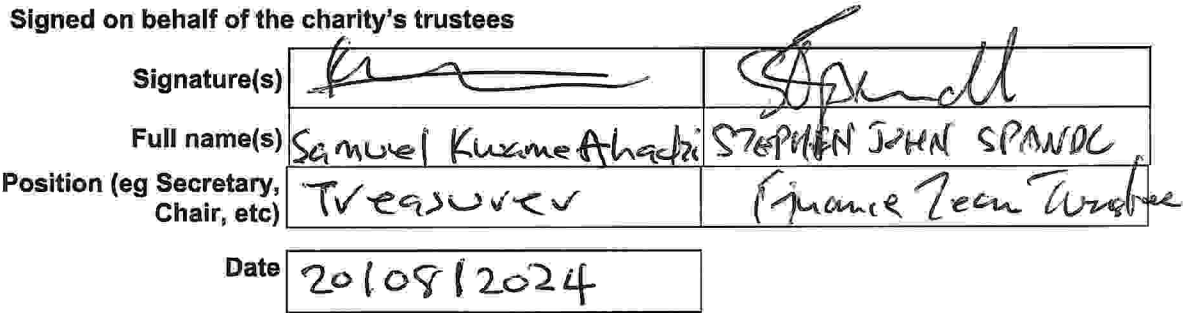 Signed on behalf of the charity's trustees
Signature(s)
Full name(s) Samuel Kwame Ahadzi STEPHEN JOHN
Position (eg Secretary, Chair, etc) Treasurer Finance Team Trustee
Date 20/08/2024